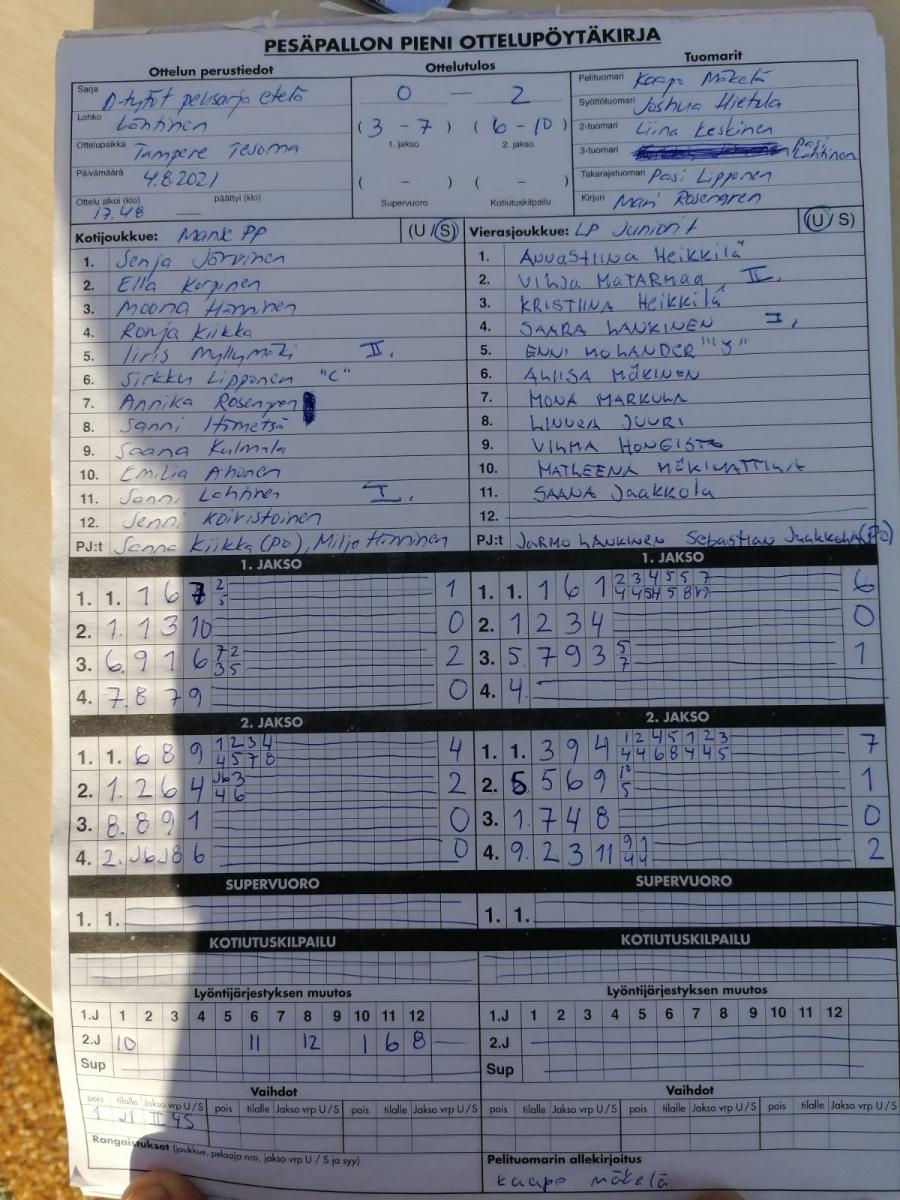 PESÄPALLON PIENI OTTELUPÖYTÄKIRJA
Ottelun perustiedot
Ottelutulos
Tuomarit
Sarja D-tytöt pelisarja etelä
Lohko Lahtinen
Ottelupaikka Tampere Tesoma
Päivämäärä 4.8.2021
Ottelu alkoi (klo) 17.48 — päättyi (klo)
0 — 2
( 3 - 7 ) ( 6 - 10 )
1. jakso 2. jakso
( - ) ( - )
Supervuoro Kotiutuskilpailu
Pelituomari Kaapo Mäkelä
Syöttötuomari Joshua Hietala
2-tuomari Liina Keskinen
3-tuomari Pasi Lahtinen
Takarajatuomari Pasi Lipponen
Kirjuri Mari Rosengren
Kotijoukkue: Manse PP (U / S)
1. Senja Järvinen
2. Ella Korpinen
3. Moona Hänninen
4. Ronja Kiikka
5. Iiris Myllymäki II.
6. Sirkku Lipponen "C"
7. Annika Rosengren
8. Sanni Hämetsä
9. Saana Kulmala
10. Emilia Ahonen
11. Sanni Lahtinen I.
12. Jenni Koivistoinen
PJ:t Sanna Kiikka (PO), Miljo Hänninen
Vierasjoukkue: LP Juniorit (U / S)
1. ANNASTIINA HEIKKILÄ
2. VILJA MATARMAA II.
3. KRISTIINA HEIKKILÄ
4. SAARA LANKINEN I.
5. ENNI MOLANDER
6. ALIISA MÄKINEN
7. MONA MARKULA
8. LINNEA JUURI
9. VILMA HONGISTO
10. MATLEENA
11. SAANA Jaakkola
12.
PJ:t JARMO LANKINEN Sebastian Jaakkola (PO)
1. JAKSO
1. 1. 1 6 7 2 1
5
2. 1. 1 3 10 0
3. 6. 9 1 6 7 2 2
3 5
4. 7. 8 7 9 0
2. JAKSO
1. 1. 6 8 9 1 2 3 4 4
4 5 7 8
2. 1. 2 6 4 J6 3 2
4 6
3. 8. 8 9 1 0
4. 2. J6 J8 6 0
SUPERVUORO
1. 1.
KOTIUTUSKILPAILU
1. JAKSO
1. 1. 1 6 1 2 3 4 5 5 7 6
2. 1 2 3 4 0
3. 5. 7 9 3 5 1
7
4. 4.
2. JAKSO
1. 1. 3 9 4 1 2 4 5 1 2 3 7
4 4 6 8 4 4 5
2. 5. 5 6 9 10 1
5
3. 1. 7 4 8 0
4. 9. 2 3 11 9 1 2
4 4
SUPERVUORO
1. 1.
KOTIUTUSKILPAILU
Lyöntijärjestyksen muutos
1.J 1 2 3 4 5 6 7 8 9 10 11 12
2.J 10 11 12 1 6 8
Sup
Lyöntijärjestyksen muutos
1.J 1 2 3 4 5 6 7 8 9 10 11 12
2.J
Sup
Vaihdot
pois tilalle Jakso vrp U / S pois tilalle Jakso vrp U / S pois tilalle Jakso vrp U / S
1 J1 II 4S
Vaihdot
pois tilalle Jakso vrp U / S pois tilalle Jakso vrp U / S pois tilalle Jakso vrp U / S
Rangaistukset (joukkue, pelaaja nro, jakso vrp U / S ja syy)
Pelituomarin allekirjoitus
Kaapo Mäkelä